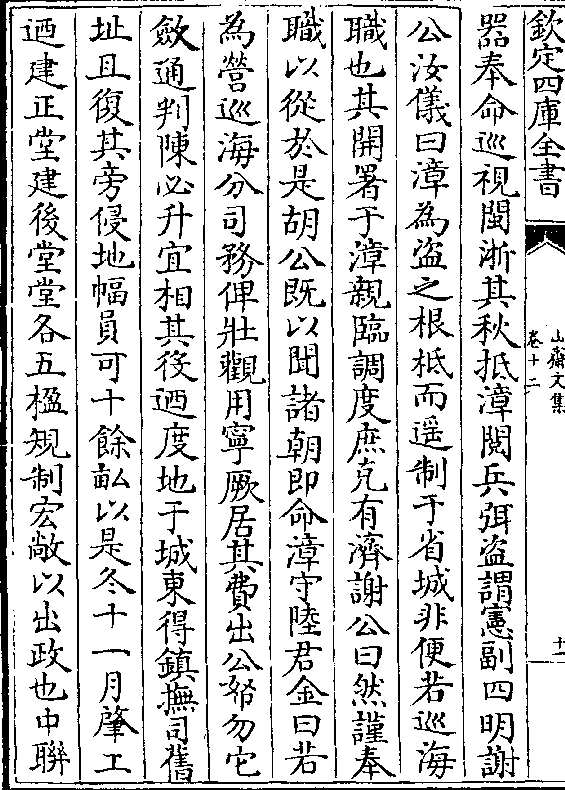 欽定四庫全書
山齋文集
卷十二
十一
器奉命巡視閩淅其秋抵漳閱兵弭盗謂憲副四明謝
公汝儀曰漳為盗之根柢而遥制于省城非便若巡海
職也其開署于漳親臨調度庶克有濟謝公曰然謹奉
職以從於是胡公既以聞諸朝即命漳守陸君金曰若
為營巡海分司務俾壯觀用寧厥居其費出公帑勿它
斂通判陳必升宜相其後迺度地于城東得鎮撫司舊
址且復其旁侵地幅員可十餘畝以是冬十一月肇工
迺建正堂建後堂堂各五楹規制宏敞以出政也中聯